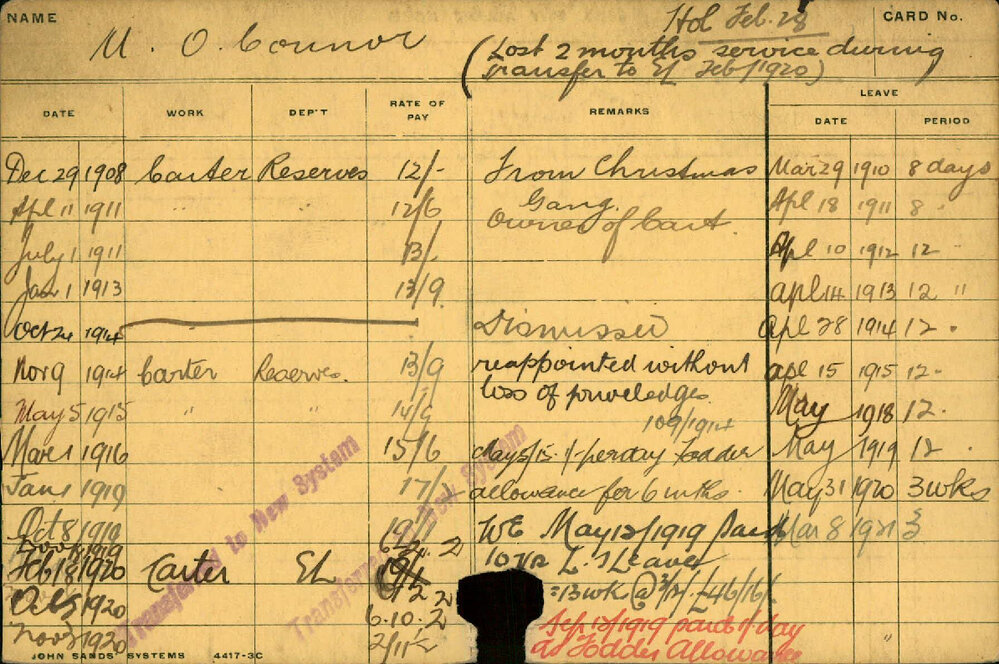 NAME
M. O'Connor
Hol Feb. 28
CARD No.
(Lost 2 months service during
transfer to EL Feb/1920)
DATE WORK DEP'T RATE OF PAY REMARKS LEAVE
DATE PERIOD
Dec 29 1908 Carter Reserves 12/- From Christmas Mar 29 1910 8 days
Gang.
Apl 11 1911 " " 12/6 Owner of Cart. Apl 18 1911 8 "
July 1 1911 13/- Apl 10 1912 12 "
Jan 1 1913 13/9 Apl 14 1913 12 "
Oct 24 1914 Dismissed Apl 28 1914 12 "
Nov 9 1914 Carter Reserves. 13/9 reappointed without Apl 15 1915 12 "
loss of priveledges.
May 5 1915 " " May 1918 12 "
109/1914
Mar 1 1916 15/6 May 5/15 1/- per day fodder May 1919 12 "
Jan 1 1919 allowance for 6 mths. May 31 1920 3 wks
Oct 8 1919 WE May 12/1919 paid Mar 8 1921 3
Nov 1919
Feb 18 1920 Carter EL
L. S Leave
Oct 1920 = 13 wk @ £46/16/-
6.10.2
Nov 1920 Sep 12/1919 paid 1/- day
as Fodder Allowance
Transferred to New System
Transferred to New System
JOHN SANDS' SYSTEMS 4417-3C